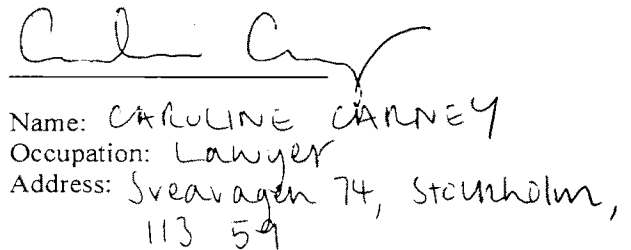 Name: CAROLINE CARNEY
Occupation: Lawyer
Address: Sveavagen 74, Stockholm,
113 59